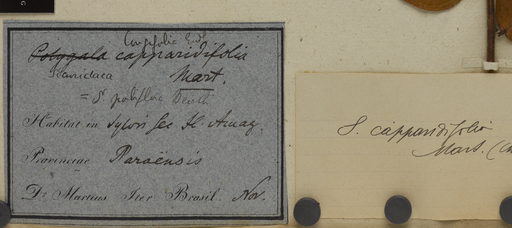 longifolia
Polygala capparidifolia
Securidaca Mart.
= S. Benth
Habitat in Sylvis Fl. Amaz.
Provinciae Paraënsis
Dr. Martius Iter Brasil. Nov.
S. capparidifolia
Mart.